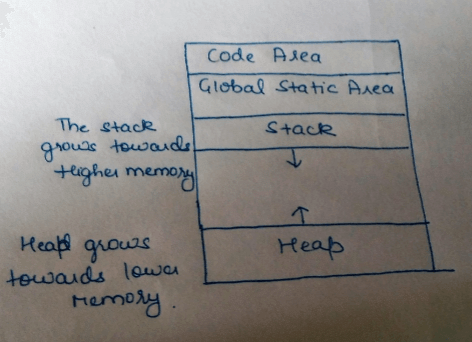 Code Area
Global Static Area
Stack
The stack
grows towards
Higher memory
Heap
Heap grows
towards lower
Memory.